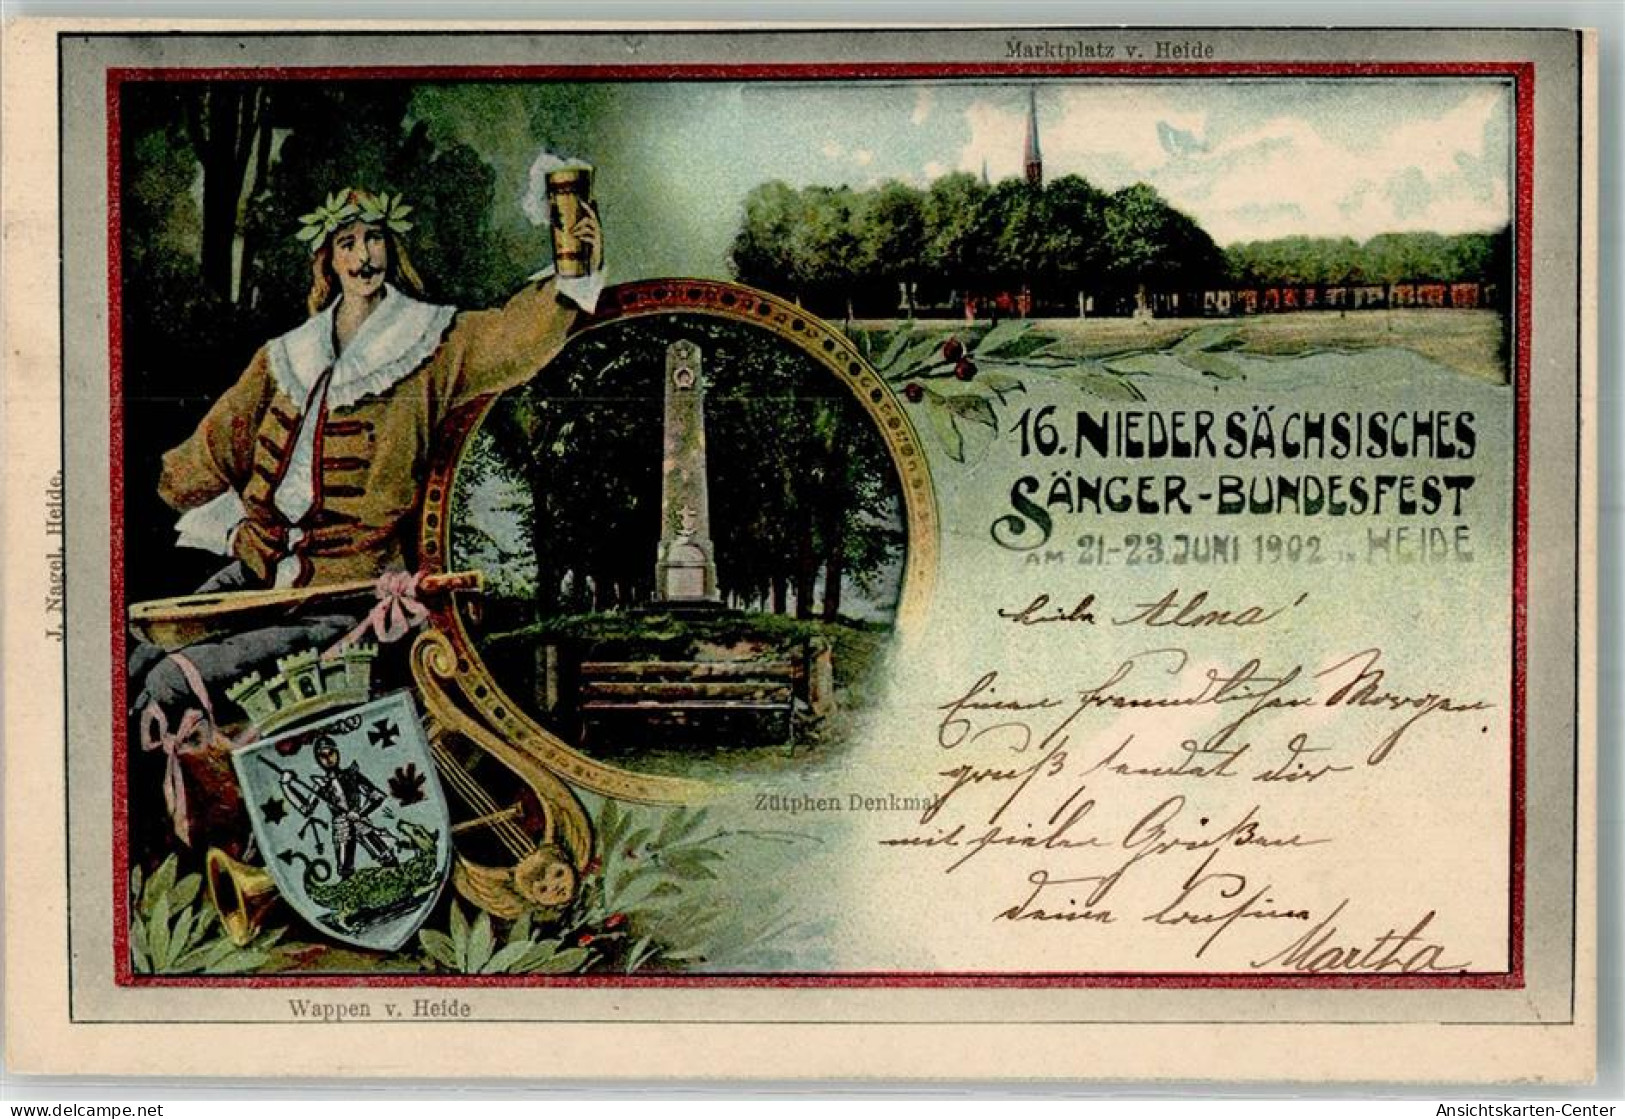 Marktplatz v. Heide
16. NIEDERSÄCHSISCHES
SÄNGER-BUNDESFEST
AM 21-23. JUNI 1902 IN HEIDE
Liebe Alma!
Einen freundlichen Morgen
gruß sendet dir
mit vielen Grüßen
deine Cousine
Martha.
Zütphen Denkmal
Wappen v. Heide
J. Nagel, Heide.
Ansichtskarten-Center
www.delcampe.net